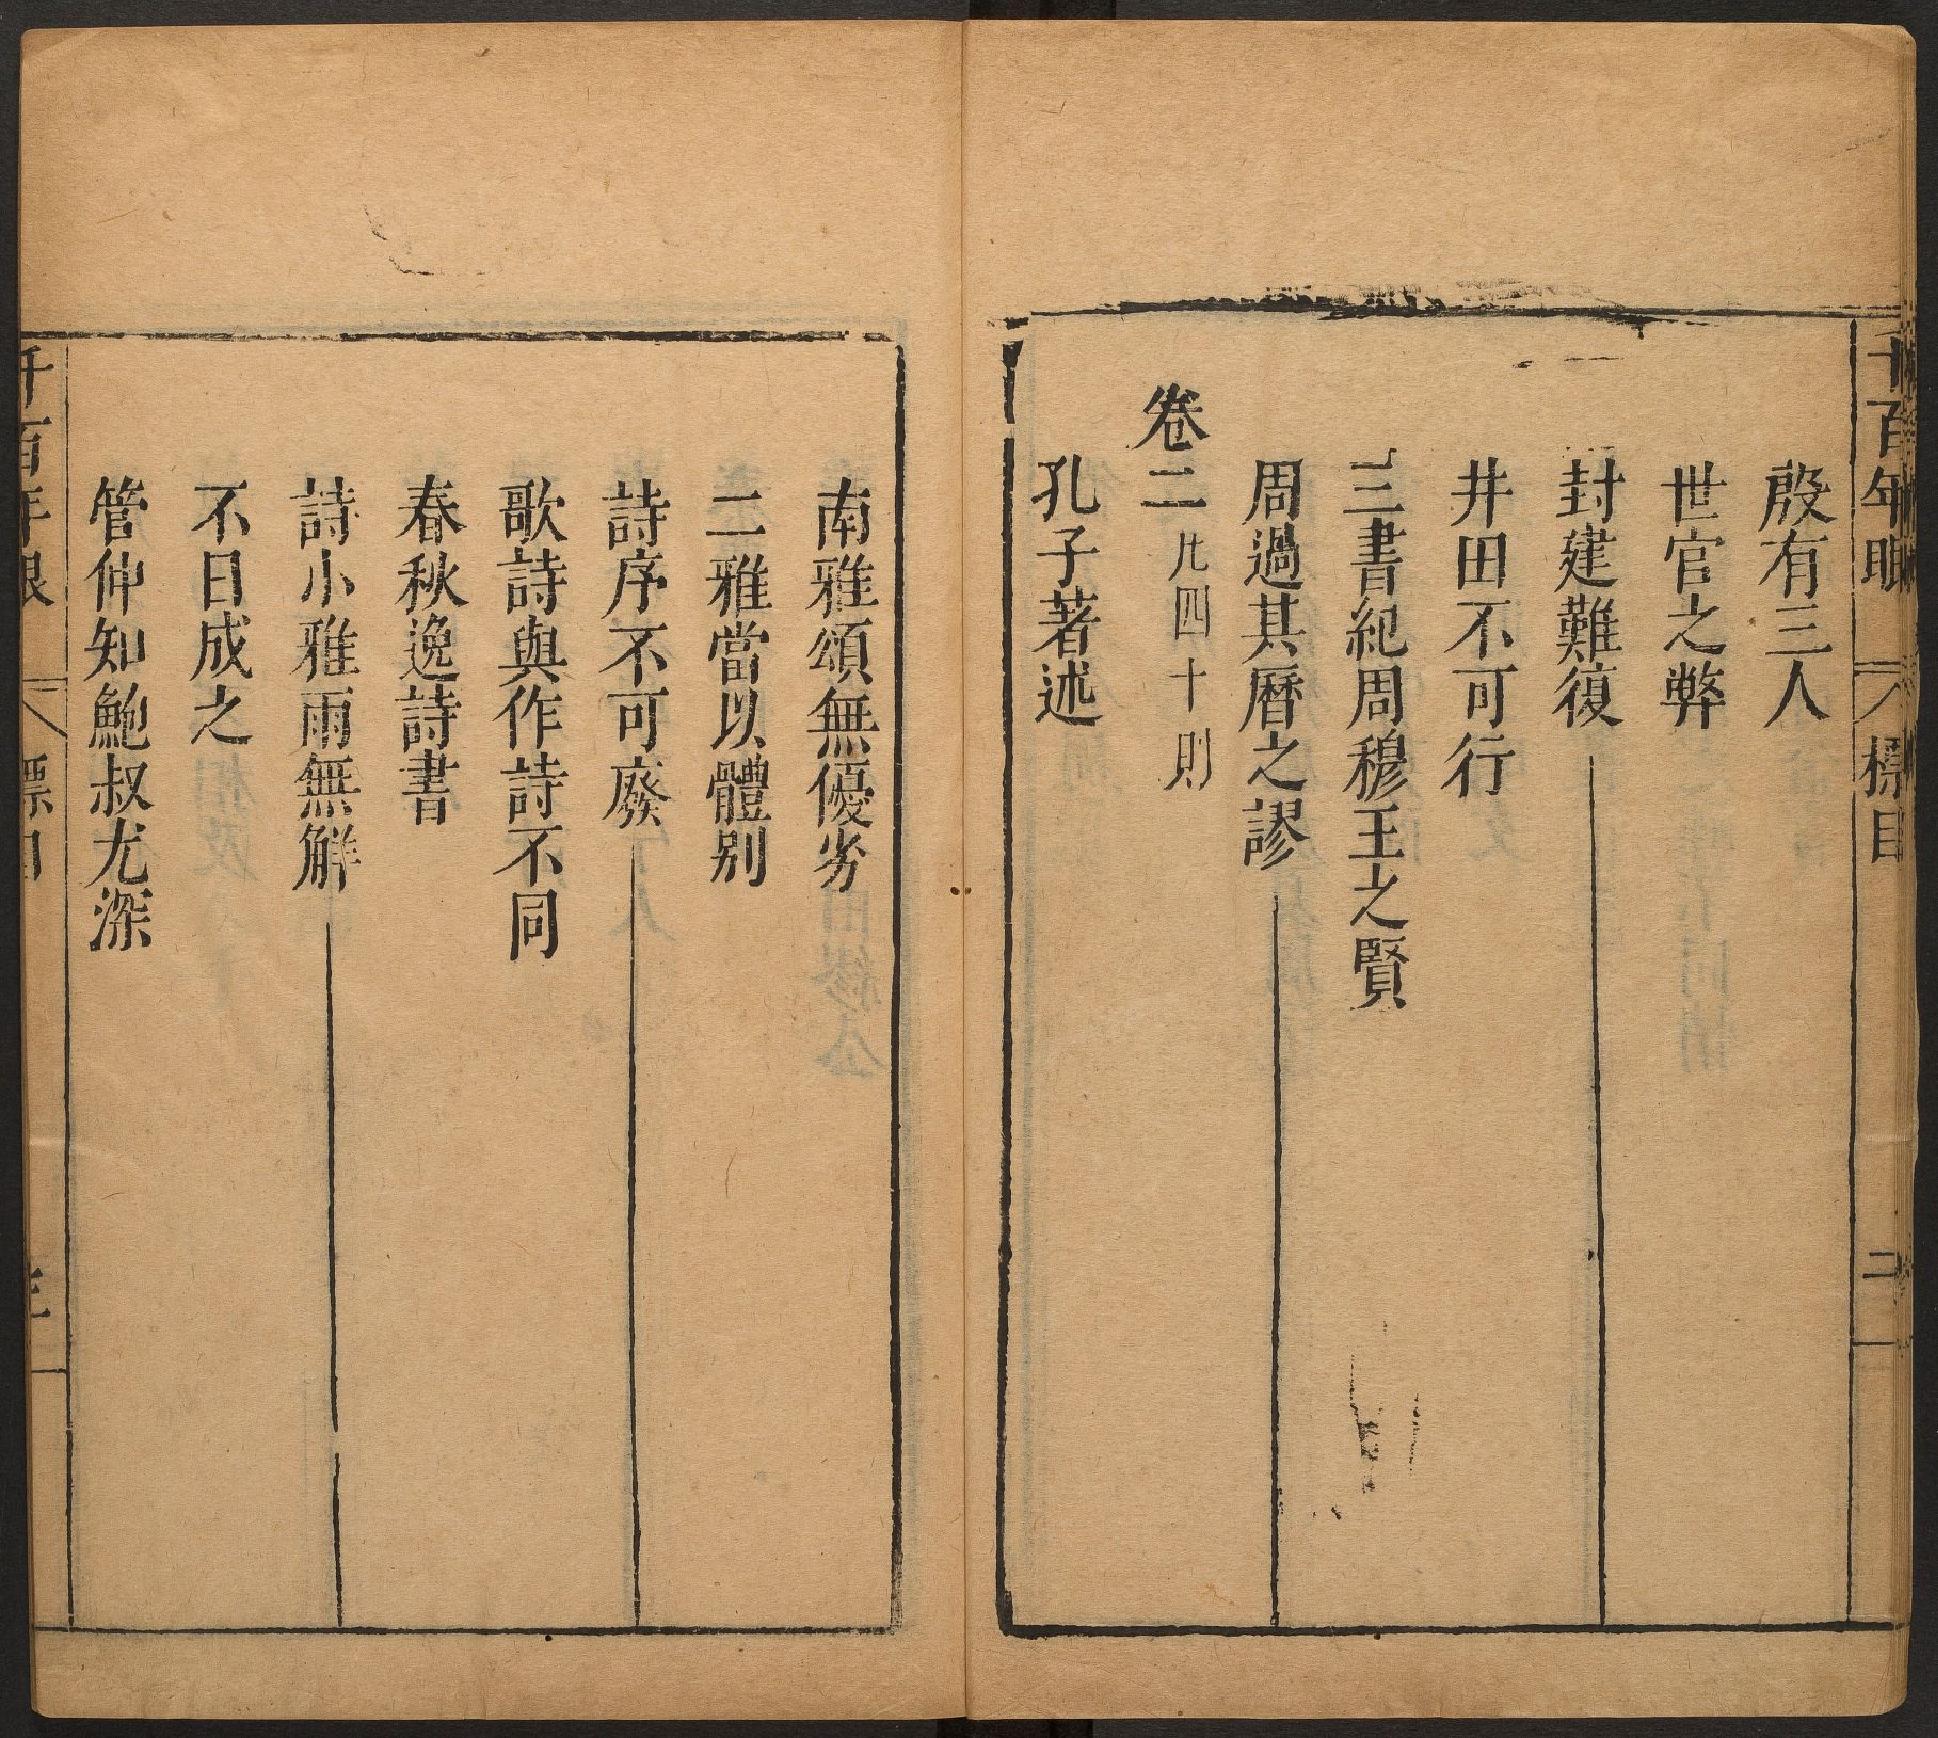 千百年眼 標目 二
殷有三人
世官之弊
封建難復
井田不可行
三書紀周穆王之賢
周過其曆之謬
卷二 凡四十則
孔子著述
南雅頌無優劣
二雅當以體別
詩序不可廢
歌詩與作詩不同
春秋逸詩書
詩小雅雨無觧
不日成之
管仲知鮑叔尤深
千百年眼 標目 三